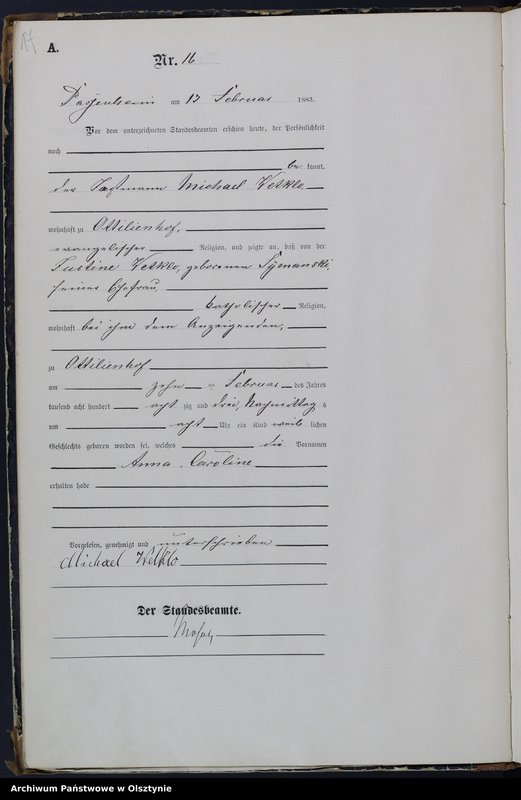 17
A.
Nr. 16
Passenheim am 13 Februar 1883.
Vor dem unterzeichneten Standesbeamten erschien heute, der Persönlichkeit
nach
be kannt,
der Michael
wohnhaft zu Ottilienhof,
evangelischer Religion, und zeigte an, daß von der
Justine geborenen
seiner Ehefrau,
katholischer Religion,
wohnhaft bei ihm dem Anzeigenden,
zu Ottilienhof
am zehn ten Februar des Jahres
tausend acht hundert acht zig und drei, Nachmittag s
um acht Uhr ein Kind weib lichen
Geschlechts geboren worden sei, welches die Vornamen
Anna, Caroline
erhalten habe
Vorgelesen, genehmigt und unterschrieben
Michael
Der Standesbeamte.
Archiwum Państwowe w Olsztynie